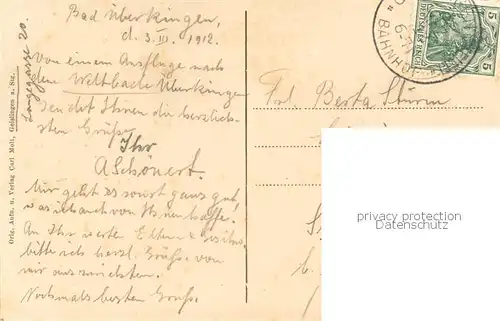 Bad Überkingen,
d. 3. III. 1912.
Von einem Ausfluge nach
dem Weltbade Überkingen
sendet Ihnen die herzlich-
sten Grüße
Ihr
A Schönert.
Mir geht es sonst ganz gut,
was ich auch von Ihnen hoffe.
An Ihr werten Eltern &
bitte ich herzl. Grüße von
mir auszurichten.
Nochmals besten Gruß.
Langegasse 20.
Orig. Aufn. u. Verlag Carl Moll, Geislingen a. Stg.
Frl. Berta Sturm
DEUTSCHES REICH
5
5
BAHNHOF
privacy protection
Datenschutz